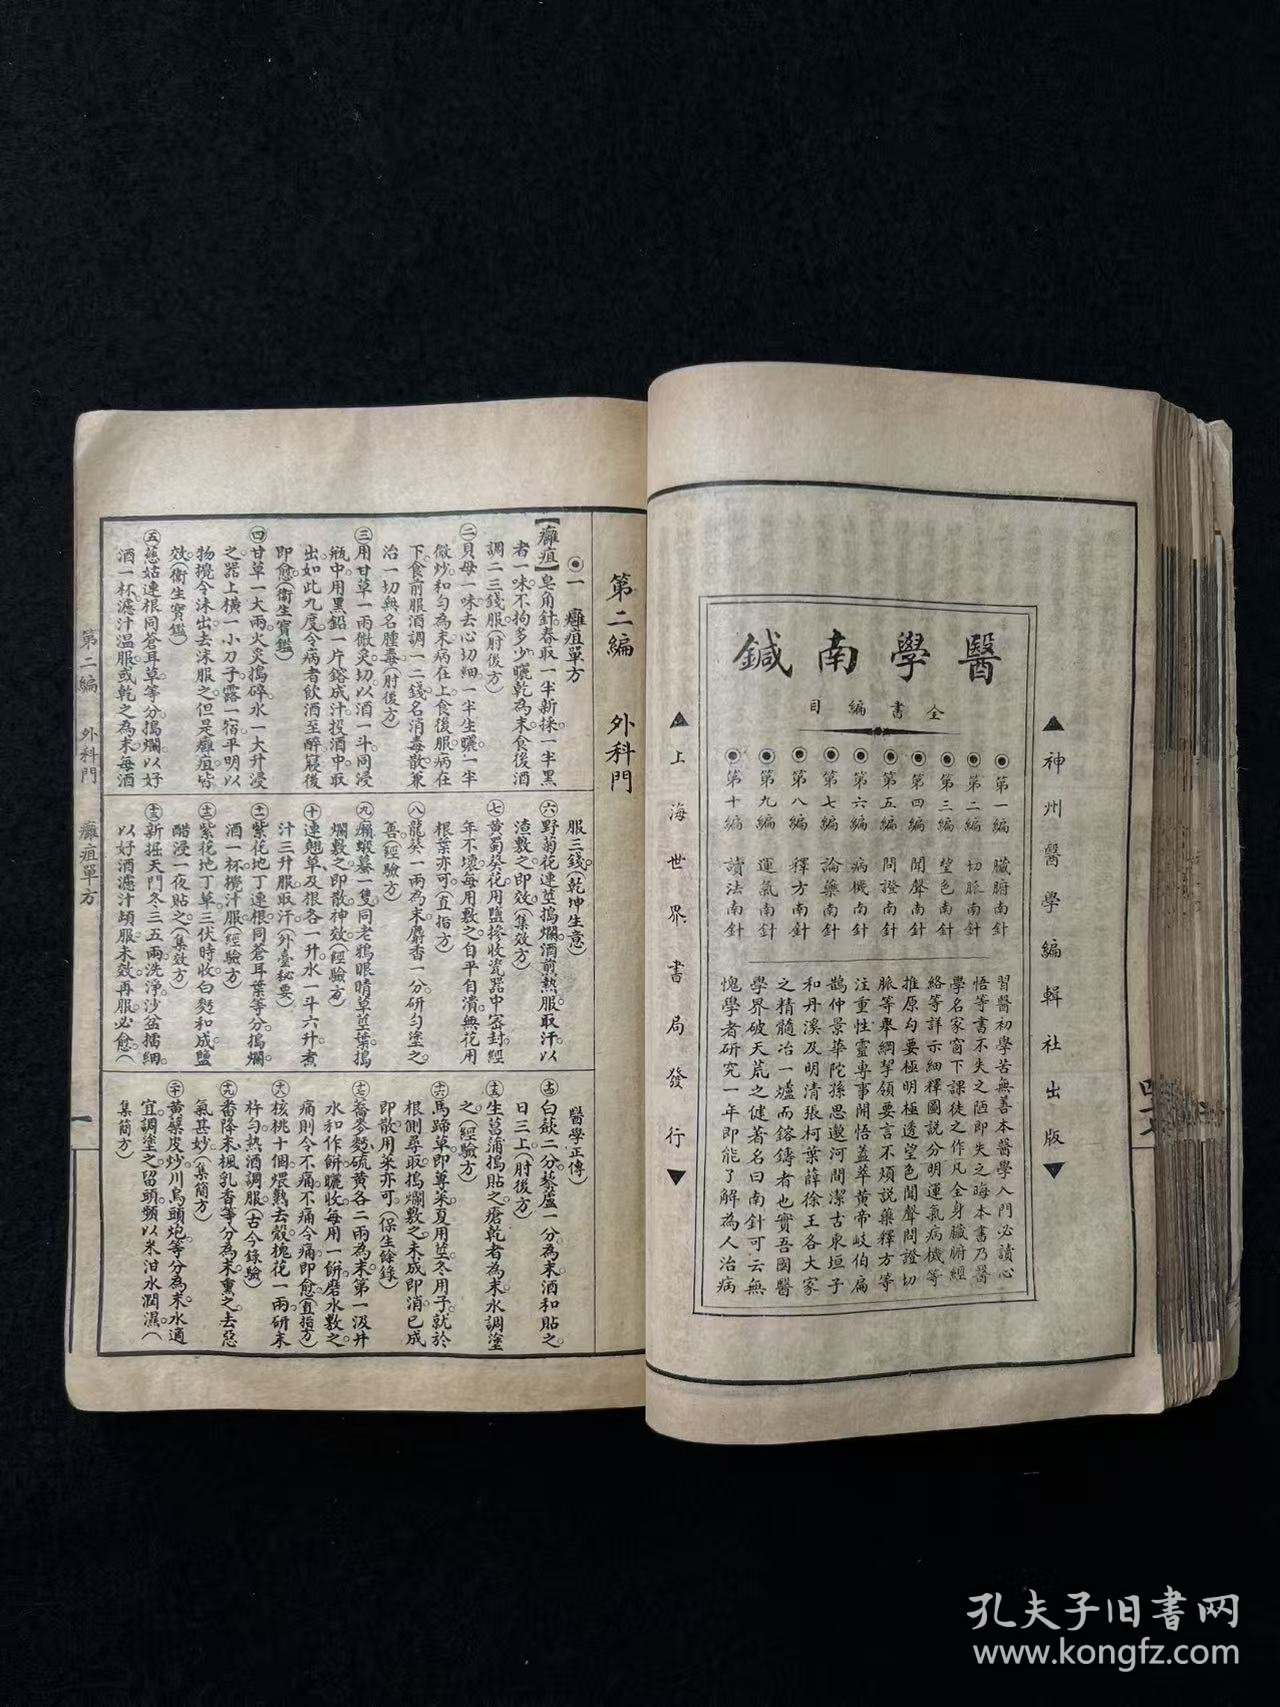 醫學南鍼
全書編目
第一編　臟腑南針
第二編　切脈南針
第三編　望色南針
第四編　聞聲南針
第五編　問證南針
第六編　病機南針
第七編　論藥南針
第八編　釋方南針
第九編　運氣南針
第十編　讀法南針
習醫初學苦無善本醫學入門必讀心
悟等書不失之陋即失之晦本書乃醫
學名家窗下課徒之作凡全身臟腑經
絡等詳示細釋圖說分明運氣病機等
推原勾要極明極透望色聞聲問證切
脈等舉綱挈領要言不煩說藥釋方等
注重性靈專事開悟蓋萃黃帝岐伯扁
鵲仲景華陀孫思邈河間潔古東垣子
和丹溪及明清張柯葉薛徐王各大家
之精髓冶一爐而鎔鑄者也實吾國醫
學界破天荒之健著名曰南針可云無
愧學者研究一年即能了解為人治病
▲神州醫學編輯社出版▼
▲上海世界書局發行▼
第二編　外科門
◉一　癰疽單方
【癰疽】皂角針春取一半新採一半黑
者一味不拘多少曬乾為末食後酒
調二三錢服(肘後方)
㊁貝母一味去心切細一半生曬一半
微炒和勻為末病在上食後服病在
下食前服酒調一二錢名消毒散兼
治一切無名腫毒(肘後方)
㊂用甘草一兩微炙切以酒一斗同浸
瓶中用黑鉛一片鎔成汁投酒中取
出如此九度令病者飲酒至醉寢後
即愈(衞生寶鑑)
㊃甘草一大兩火炙搗碎水一大升浸
之器上橫一小刀子露一宿平明以
物攪令沫出去沫服之但是癰疽皆
效(衞生寶鑑)
㊄慈姑連根同蒼耳草等分搗爛以好
酒一杯濾汁溫服或乾之為末每酒
服三錢(乾坤生意)
㊅野菊花連莖搗爛酒煎熱服取汗以
渣敷之即效(集效方)
㊆黃蜀葵花用鹽摻收瓷器中密封經
年不壞每用敷之自平自潰無花用
根葉亦可(直指方)
㊇龍葵一兩為末麝香一分研勻塗之
善(經驗方)
㊈癩蝦蟇一隻同老鴉眼睛草莖葉搗
爛敷之即散神效(經驗方)
㊉連翹草及根各一升水一斗六升煮
汁三升服取汗(外臺秘要)
紫花地丁連根同蒼耳葉等分搗爛
酒一杯攪汁服(經驗方)
紫花地丁草三伏時收白麪和成鹽
醋浸一夜貼之(集效方)
新掘天門冬三五兩洗淨沙盆擂細
以好酒濾汁頓服未效再服必愈(
醫學正傳)
白蘞二分藜蘆一分為末酒和貼之
日三上(肘後方)
生菖蒲搗貼之瘡乾者為末水調塗
之(經驗方)
馬蹄草即蓴菜夏用莖冬用子就於
根側尋取搗爛敷之未成即消已成
即散用菜亦可(保生餘錄)
蕎麥麪硫黃各二兩為末第一汲井
水和作餅曬收每用一餅磨水敷之
痛則令不痛不痛令痛即愈(直指方)
核桃十個煨熟去殼槐花一兩研末
杵勻熱酒調服(古今錄驗)
番降末楓乳香等分為末熏之去惡
氣甚妙(集簡方)
黃蘗皮炒川烏頭炮等分為末水適
宜調塗之留頭頻以米泔水潤濕(
集簡方)
第二編　外科門　癰疽單方　一
孔夫子旧書网
www.kongfz.com